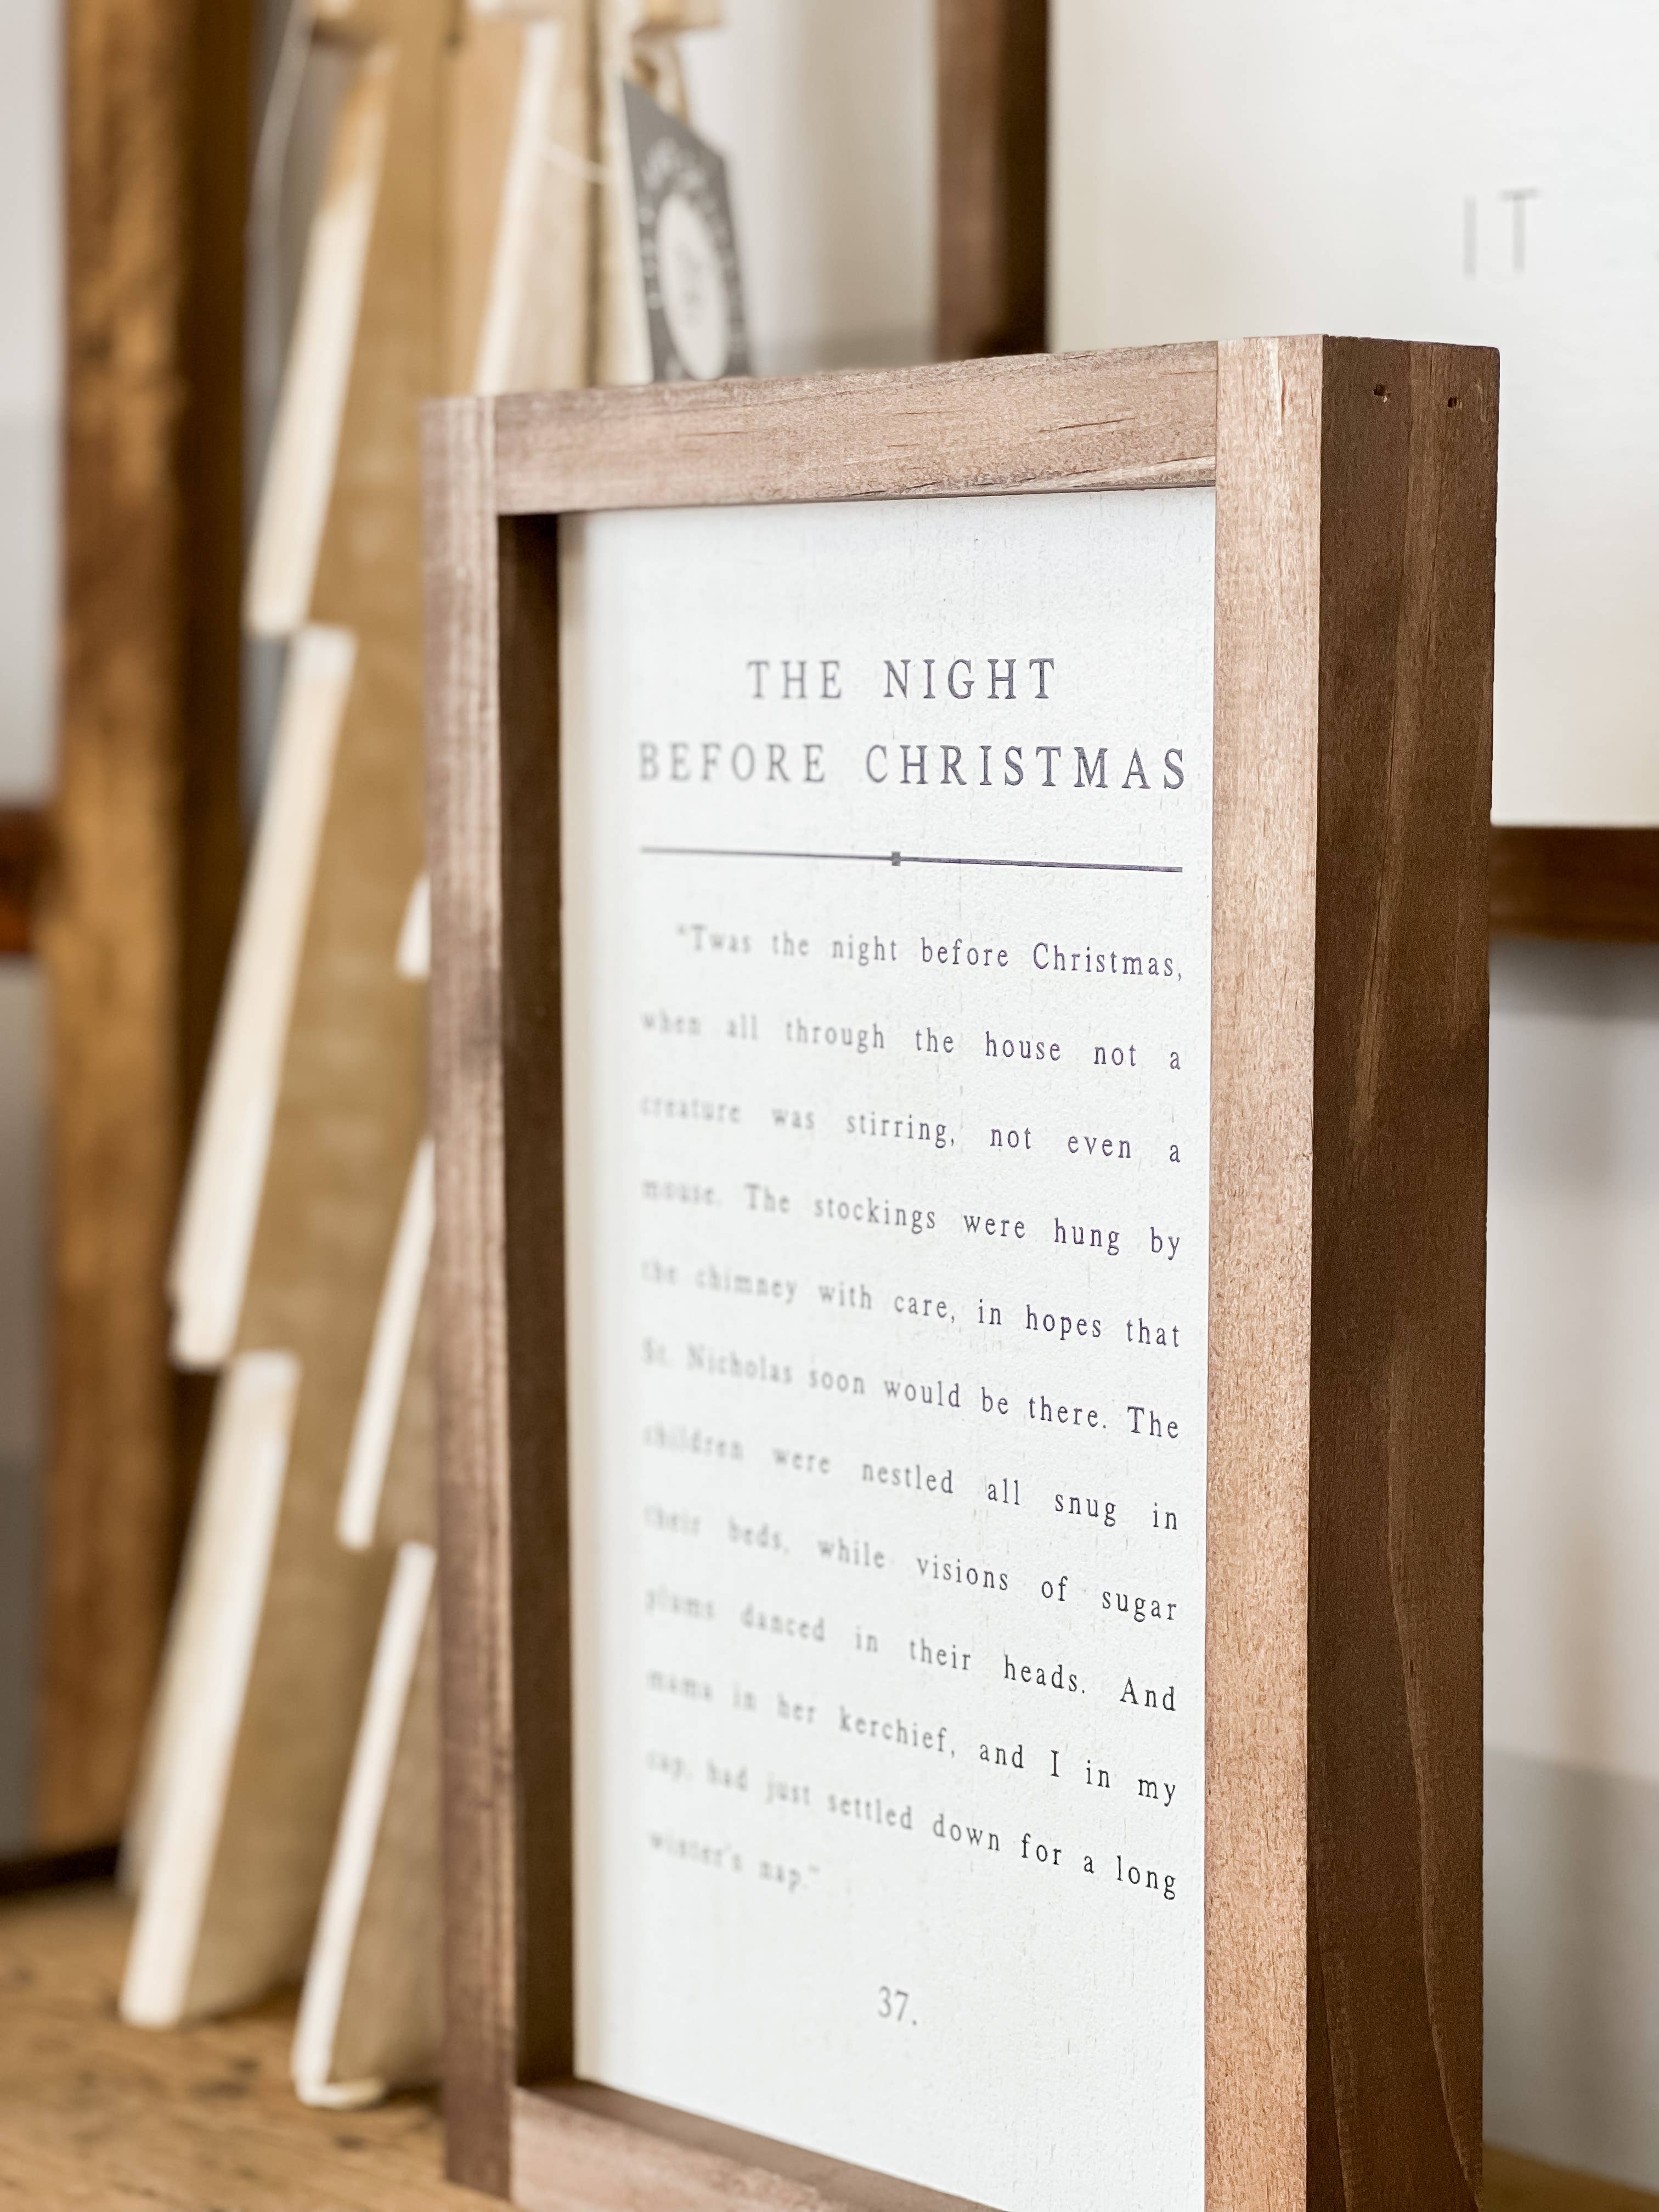 IT
THE NIGHT
BEFORE CHRISTMAS
"Twas the night before Christmas,
when all through the house not a
creature was stirring, not even a
mouse. The stockings were hung by
the chimney with care, in hopes that
St. Nicholas soon would be there. The
children were nestled all snug in
their beds, while visions of sugar
plums danced in their heads. And
mama in her kerchief, and I in my
cap, had just settled down for a long
winter's nap."
37.